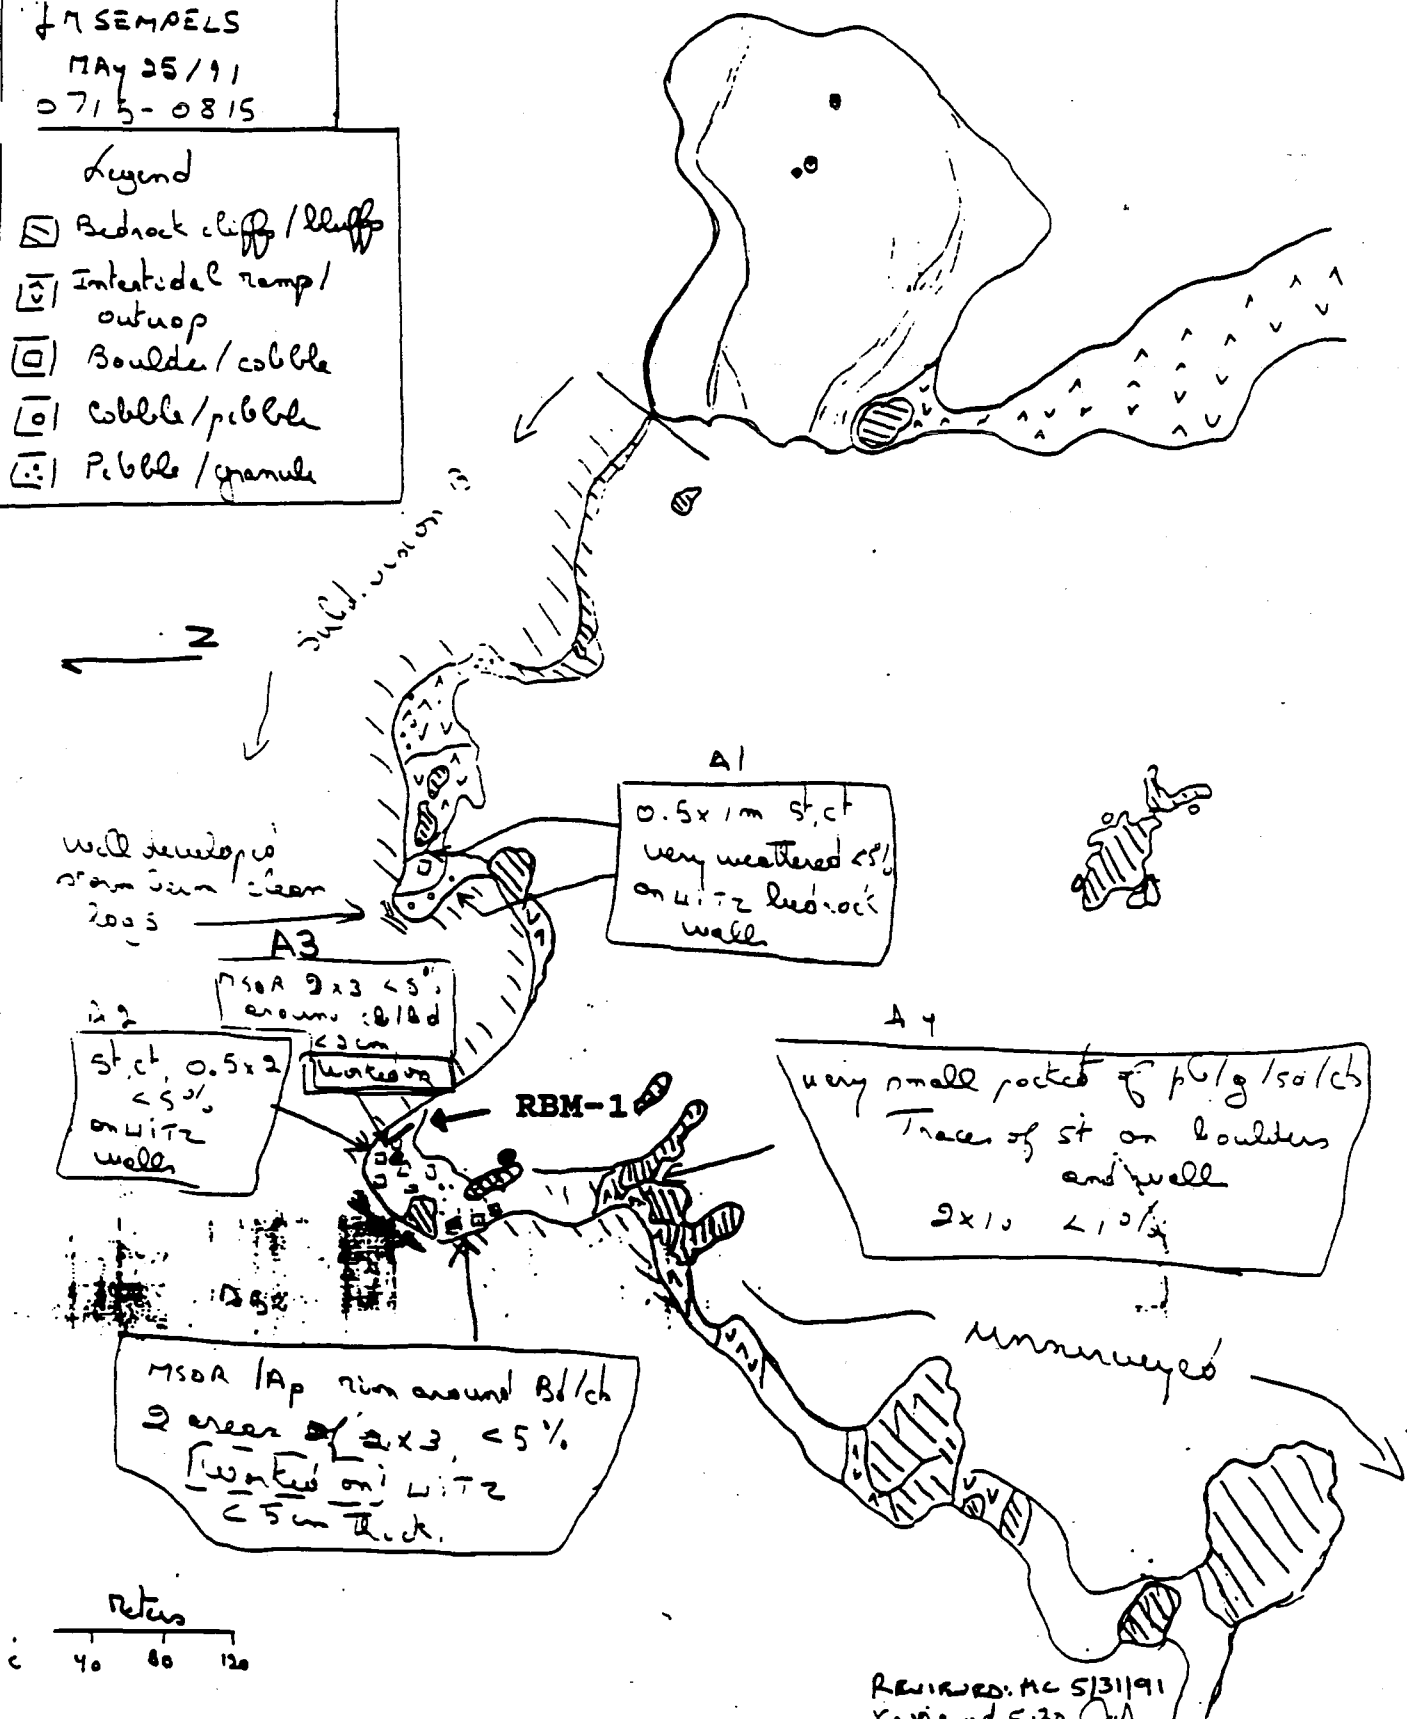 J M SEMPELS
MAY 25/91
0715-0815
Legend
Bedrock cliffs/bluffs
Intertidal ramp/
outcrop
Boulder/cobble
Cobble/pebble
Pebble/granule
N
A1
0.5x1m St, ct
very weathered <5%
on UITZ bedrock
walls
well developed
storm berm clean
logs
A3
MSOR 2x3 <5%
around cb/bd
<2cm
Worked on
A2
St, ct, 0.5x2
<5%
on UITZ
walls
RBM-1
A4
very small pocket of pb/g/sa/cb
Traces of St on boulders
and wall
2x10 <1%
unsurveyed
MSOR/Ap rim around Bd/cb
2 areas of 2x3, <5%
Worked on UITZ
<5cm Thick.
Meters
40 80 120
REVIEWED: MC 5/31/91